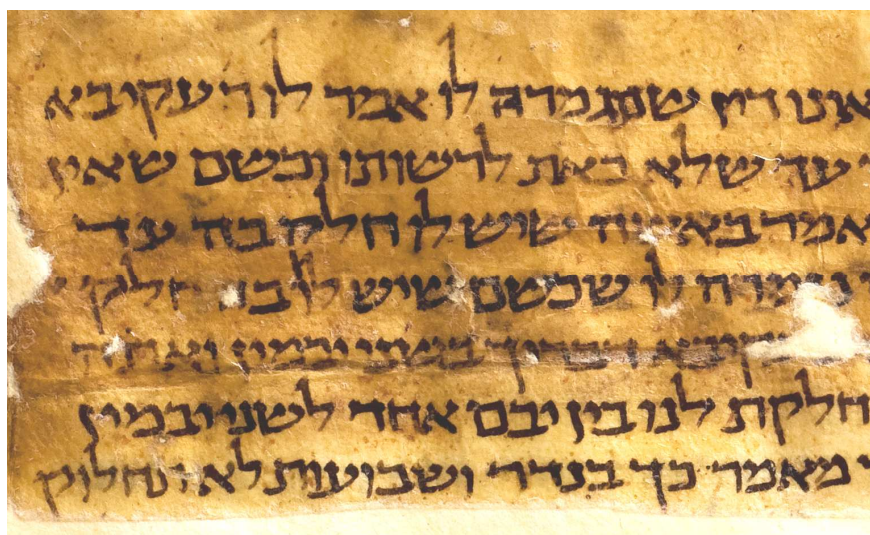 אינו דין שתגמרה לו אמר לו ר' עקיבא
עד שלא באת לרשותו וכשם שאין
אמר באשה שיש לו חלק בה עד
גמרה לו שכשם שיש לו בה חלק
עקיבא דבריך בשני יבמין
חלקת לנו בין יבם אחד לשני יבמין
מאמר כך בנדר ושבועות לא תחלוק